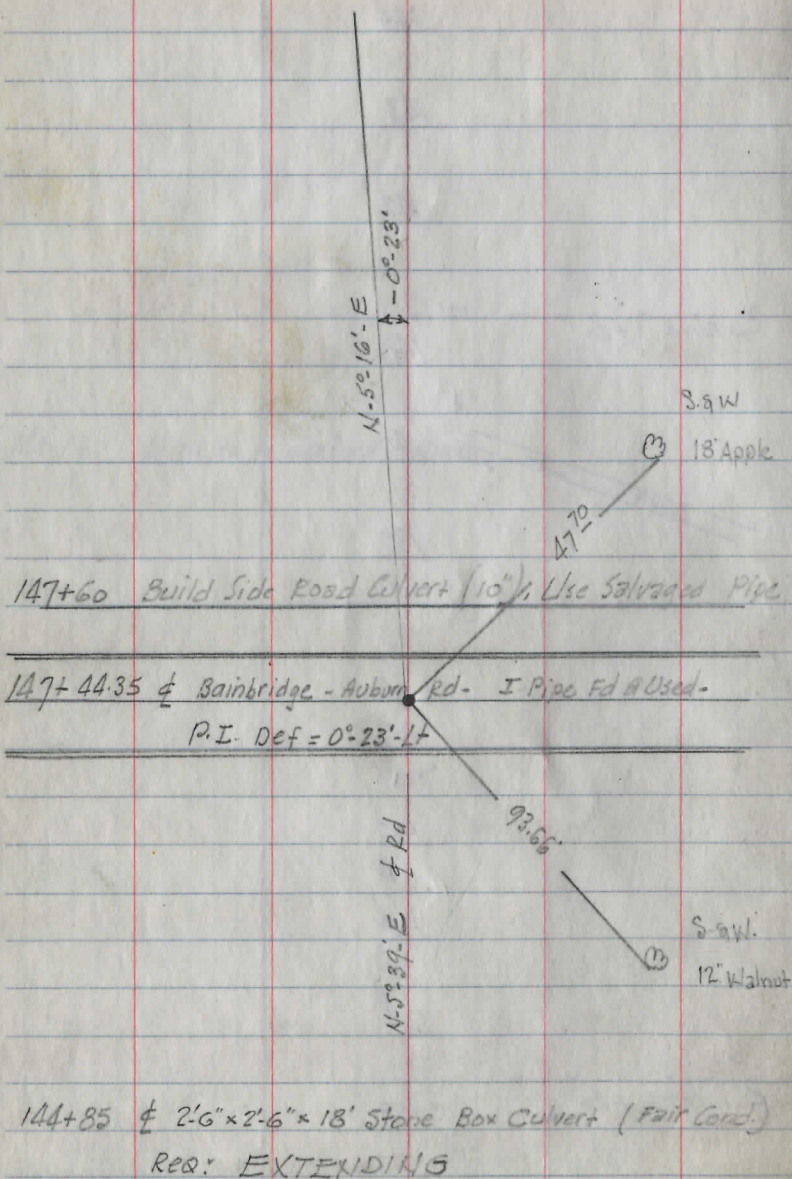 - 0°-23'
N-5°-16'-E
S.&W
18" Apple
47 70
147+60 Build Side Road Culvert (10") Use Salvaged Pipe
147+44.35 ℄ Bainbridge - Auburn Rd- I Pipe Fd & Used-
P.I. Def = 0°-23'-Lt
93.66'
N-5°-39'-E ℄ Rd
S-&W.
12" Walnut
144+85 ℄ 2'-6" x 2'-6" x 18' Stone Box Culvert (Fair Cond.)
REQ: EXTENDING